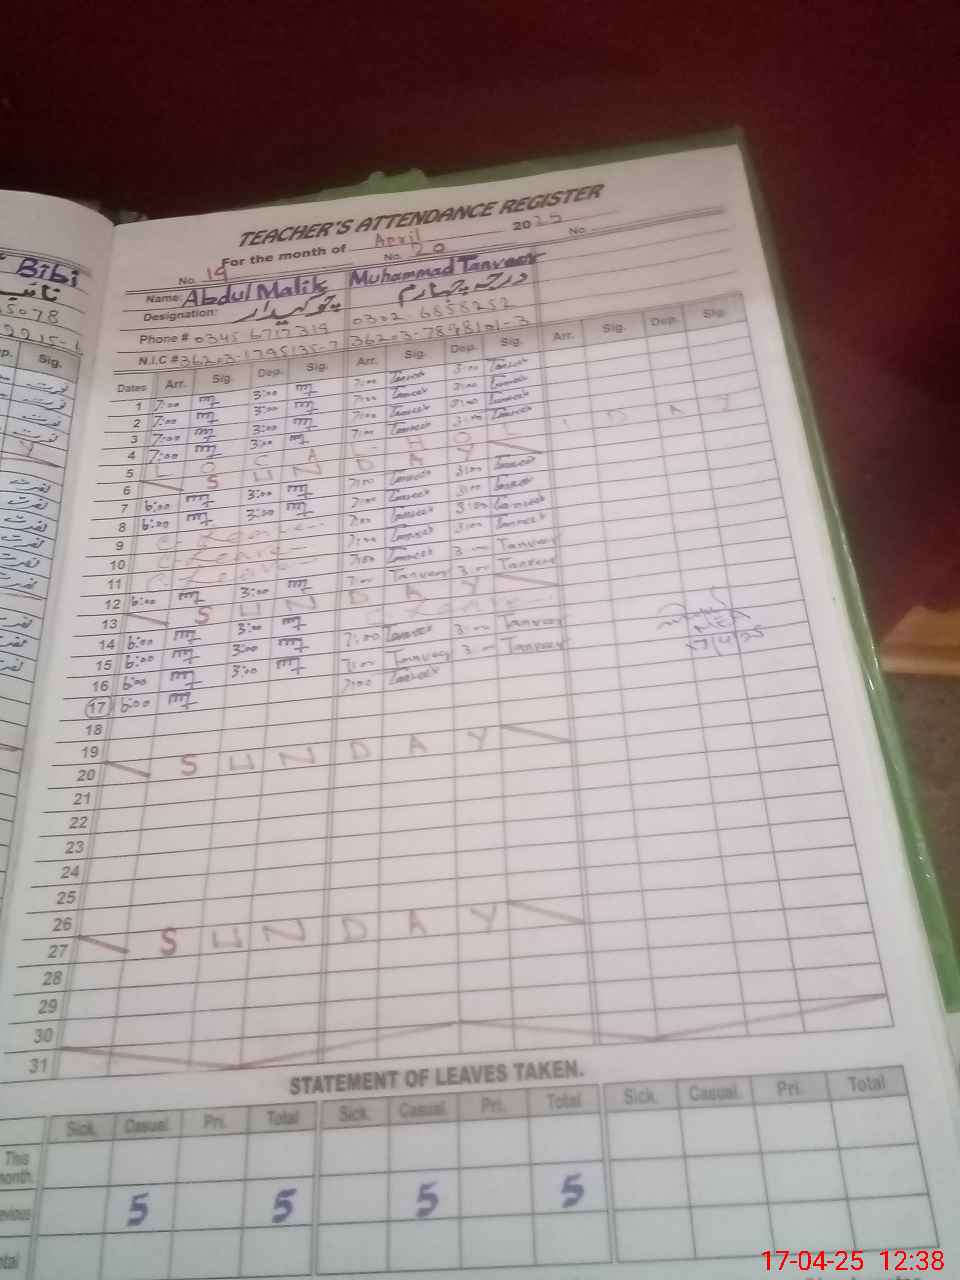 TEACHER'S ATTENDANCE REGISTER
For the month of April 2025
No. 19 No. 20 No.
Name: Abdul Malik Muhammad Tanveer
Designation: چوکیدار درجہ چہارم
Phone # 0345 6717319 0302 6858252
N.I.C # 36203-1795135-7 36203-7898101-3
Dates Arr. Sig. Dep. Sig. Arr. Sig. Dep. Sig. Arr. Sig. Dep. Sig.
1 7:00 3:00 7:00 Tanveer 3:00 Tanveer
2 7:00 3:00 7:00 Tanveer 3:00 Tanveer
3 7:00 3:00 7:00 Tanveer 3:00 Tanveer
4 7:00 3:00 7:00 Tanveer 3:00 Tanveer
5 L O C A L H O L I D A Y
6 S U N D A Y
7 6:00 3:00 7:00 Tanveer 3:00 Tanveer
8 6:00 3:00 7:00 Tanveer 3:00 Tanveer
9 C-Leave 7:00 Tanveer 3:00 Tanveer
10 C-Leave 7:00 Tanveer 3:00 Tanveer
11 C-Leave 7:00 Tanveer 3:00 Tanveer
12 6:00 3:00 7:00 Tanveer 3:00 Tanveer
13 S U N D A Y
14 6:00 3:00 C-Leave
15 6:00 3:00 7:00 Tanveer 3:00 Tanveer
16 6:00 3:00 7:00 Tanveer 3:00 Tanveer
17 6:00 7:00 Tanveer
18
19
20 S U N D A Y
21
22
23
24
25
26
27 S U N D A Y
28
29
30
31
STATEMENT OF LEAVES TAKEN.
Sick. Casual. Pri. Total Sick. Casual. Pri. Total Sick. Casual. Pri. Total
This month.
5 5 5 5
Bibi
Sig.
17-04-25 12:38